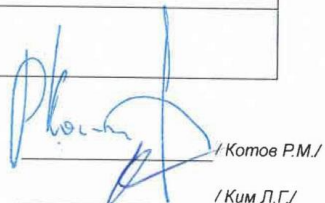 / Котов Р.М./
/ Ким Л.Г./